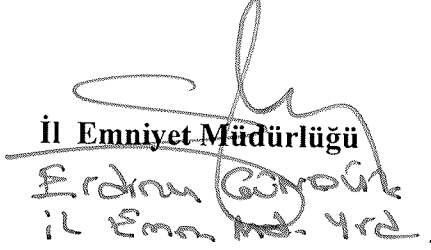 İl Emniyet Müdürlüğü
Erdinç
İL Emn Md. Yrd.